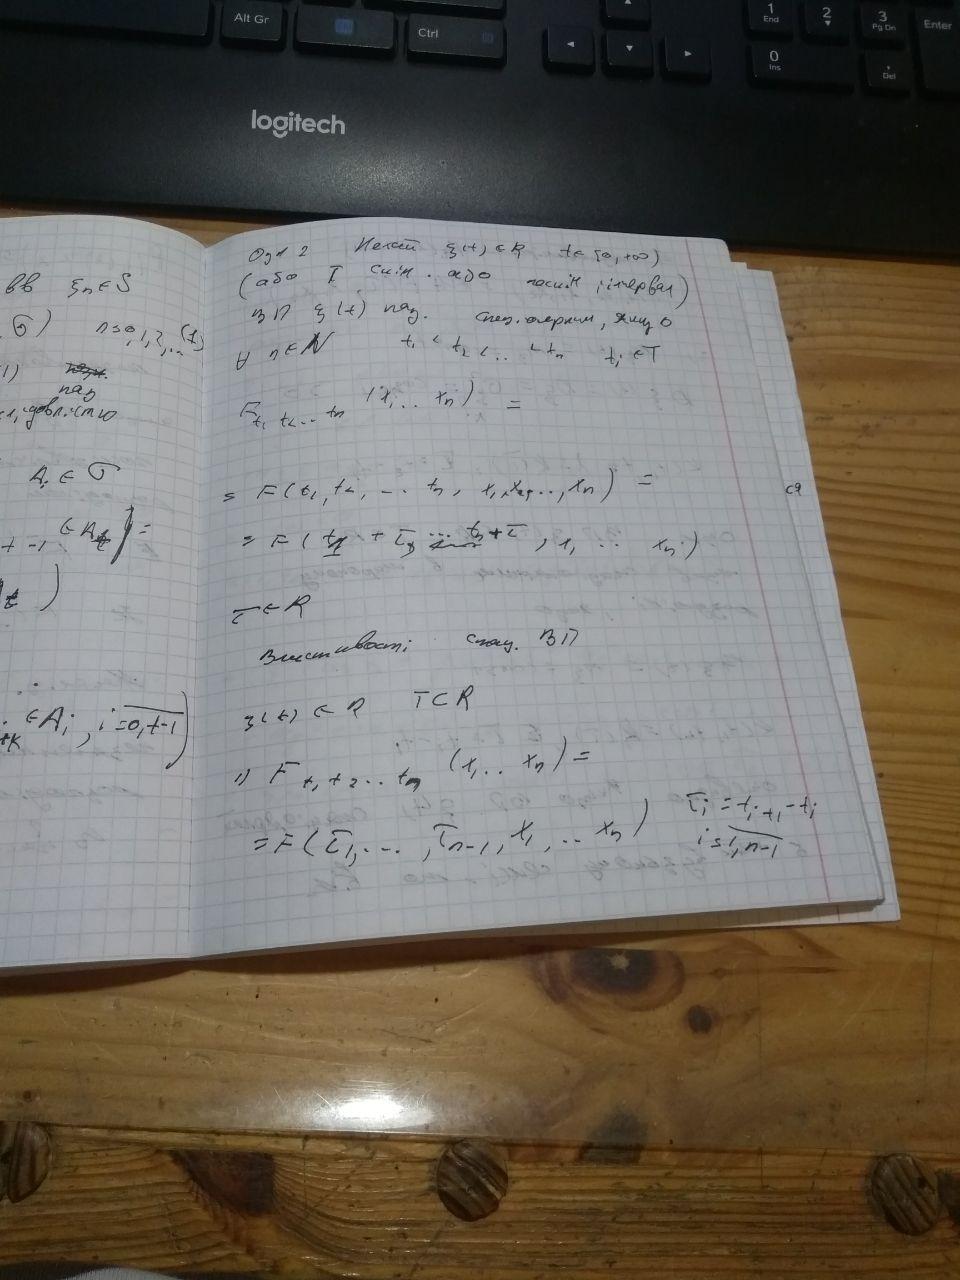 Alt Gr
Ctrl
1
End
2
3
Pg Dn
Enter
0
Ins
Del
logitech
вв ξn ∈ S
σ) n=0,1,2,... (1)
1)
наз
A ∈ σ
+ -1 ∈ At } =
t )
∈ Ai, i = 0,t-1 )
Озн 2 Нехай ξ(t) ∈ R t ∈ [0, +∞)
(або T скін. або інтервал)
ВП ξ(t) наз. якщо
∀ n ∈ N t1 < t2 < .. < tn ti ∈ T
Ft1 t2... tn (x1... xn) =
= F(t1, t2, ... tn, x1, x2, .., xn) =
= F(t1 + τ, ... tn + τ, x1 ... xn)
τ ∈ R
Властивості стац. ВП
ξ(t) ∈ R T ⊂ R
1) Ft1 t2 ... tn (x1 .. xn) =
= F(τ1, ..., τn-1, x1, .. xn) τi = ti+1 - ti
i = 1, n-1